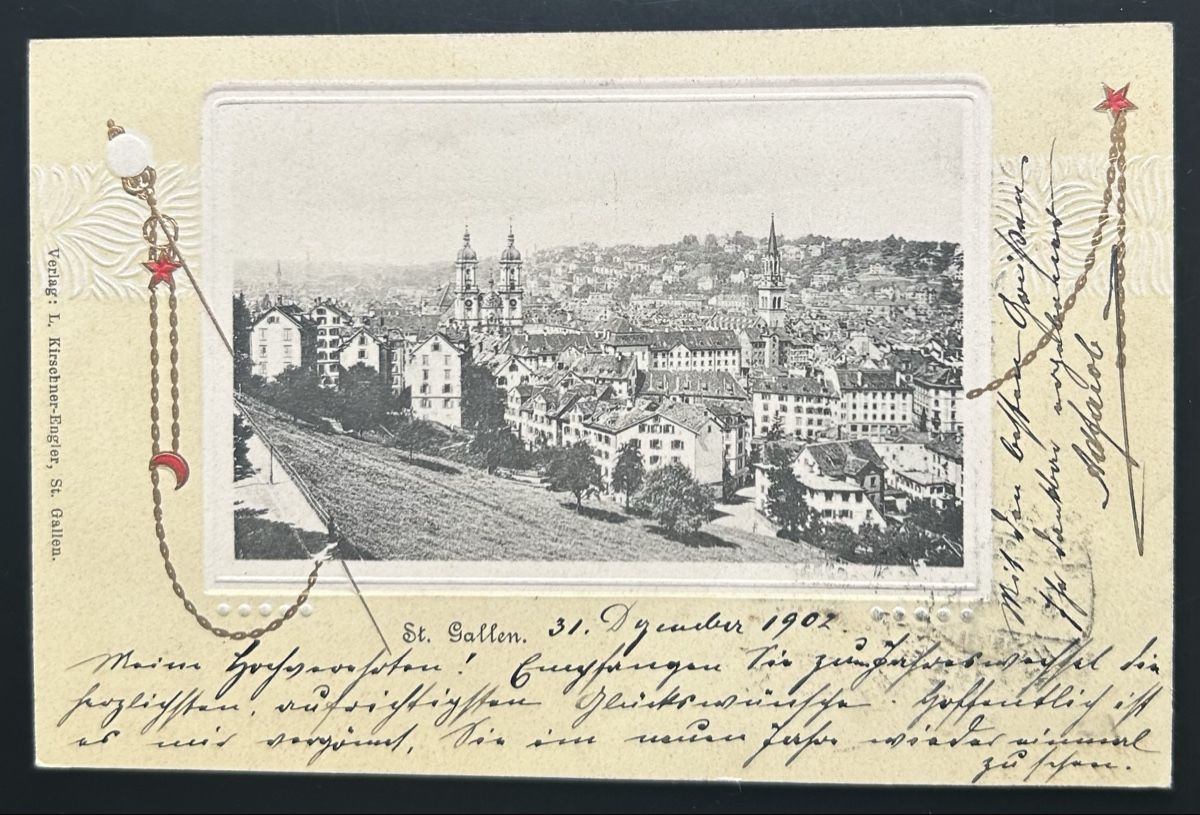 Verlag: L. Kirschner-Engler, St. Gallen.
St. Gallen. 31. Dezember 1902
Meine Hochverehrten! Empfangen Sie zum Jahreswechsel die
herzlichsten, aufrichtigsten Glückswünsche. Hoffentlich ist
es mir vergönnt, Sie im neuen Jahre wieder einmal
zu sehen.
Mit den besten Grüßen
Ihr dankbar